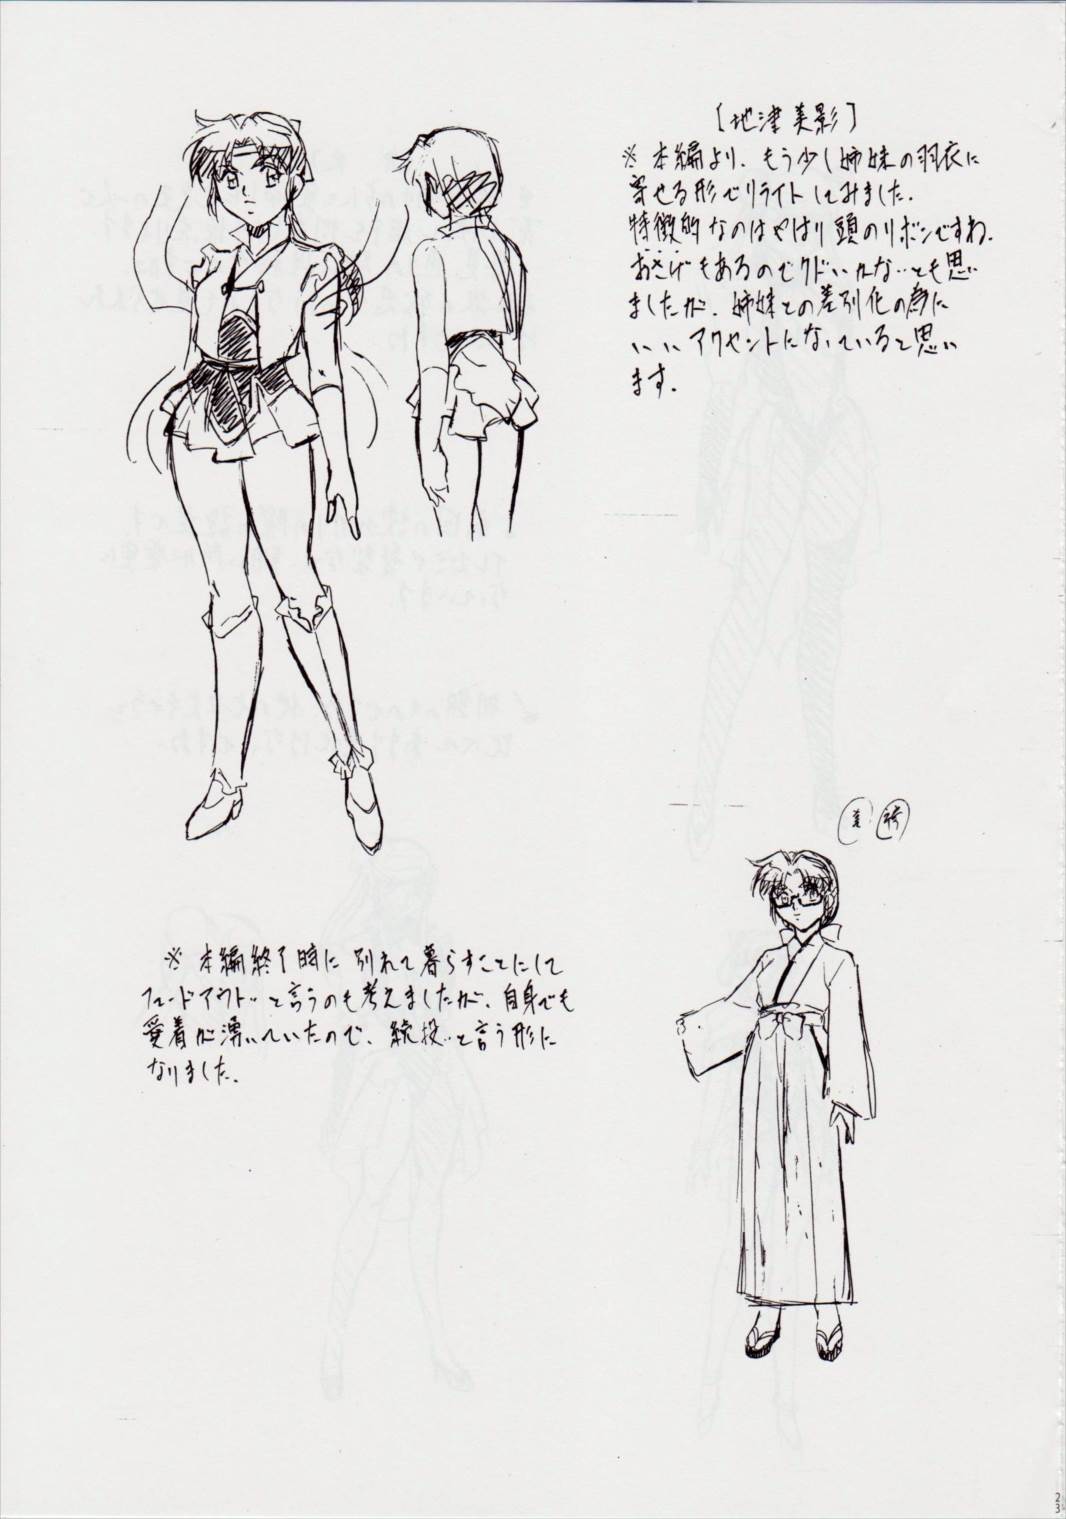 ［地津美影］
※本編より、もう少し姉妹の羽衣に
寄せる形でリライトしてみました。
特徴的なのはやはり頭のリボンですね。
おさげもあるのでクドいかな…とも思い
ましたが、姉妹との差別化の為に
いいアクセントになっていると思い
ます。
※本編終了時に別れて暮らすことにして
フェードアウト…と言うのも考えましたが、自身でも
愛着が湧いていたので、続投…と言う形に
なりました。
23